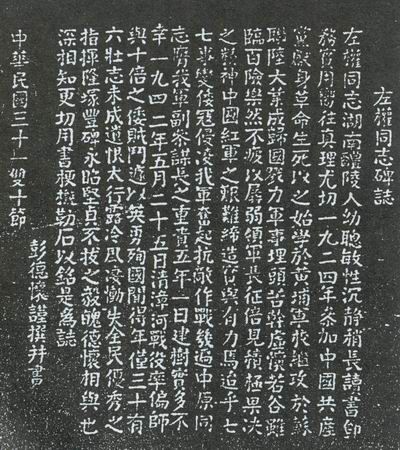 左權同志碑誌
左權同志湖南醴陵人幼聰敏性沉靜稍長讀書即
務實用嚮往真理尤切一九二四年參加中國共產
黨獻身革命生死以之始學於黃埔軍校繼攻於蘇
聯陸大業成歸國戮力軍事埋頭苦幹虛懷若谷雖
臨百險樂然不疲以孱弱領軍長征倍見積極果決
之精神中國紅軍之艱難締造實與有力焉迨乎七
七事變倭寇侵凌我軍奮起抗敵作戰遍中原同
志膺我軍副參謀長之重責五年一日建樹實多不
幸一九四二年五月二十五日清漳河戰役率偏師
與十倍之倭賊鬥遽以英勇殉國聞得年僅三十有
六壯志未成遺恨太行露冷風淒慟失全民優秀之
指揮隆塚豐碑永昭堅貞不拔之毅魄德懷相與也
深相知更切用書梗概勒石以銘是為誌
中華民國三十一雙十節
彭德懷謹撰并書